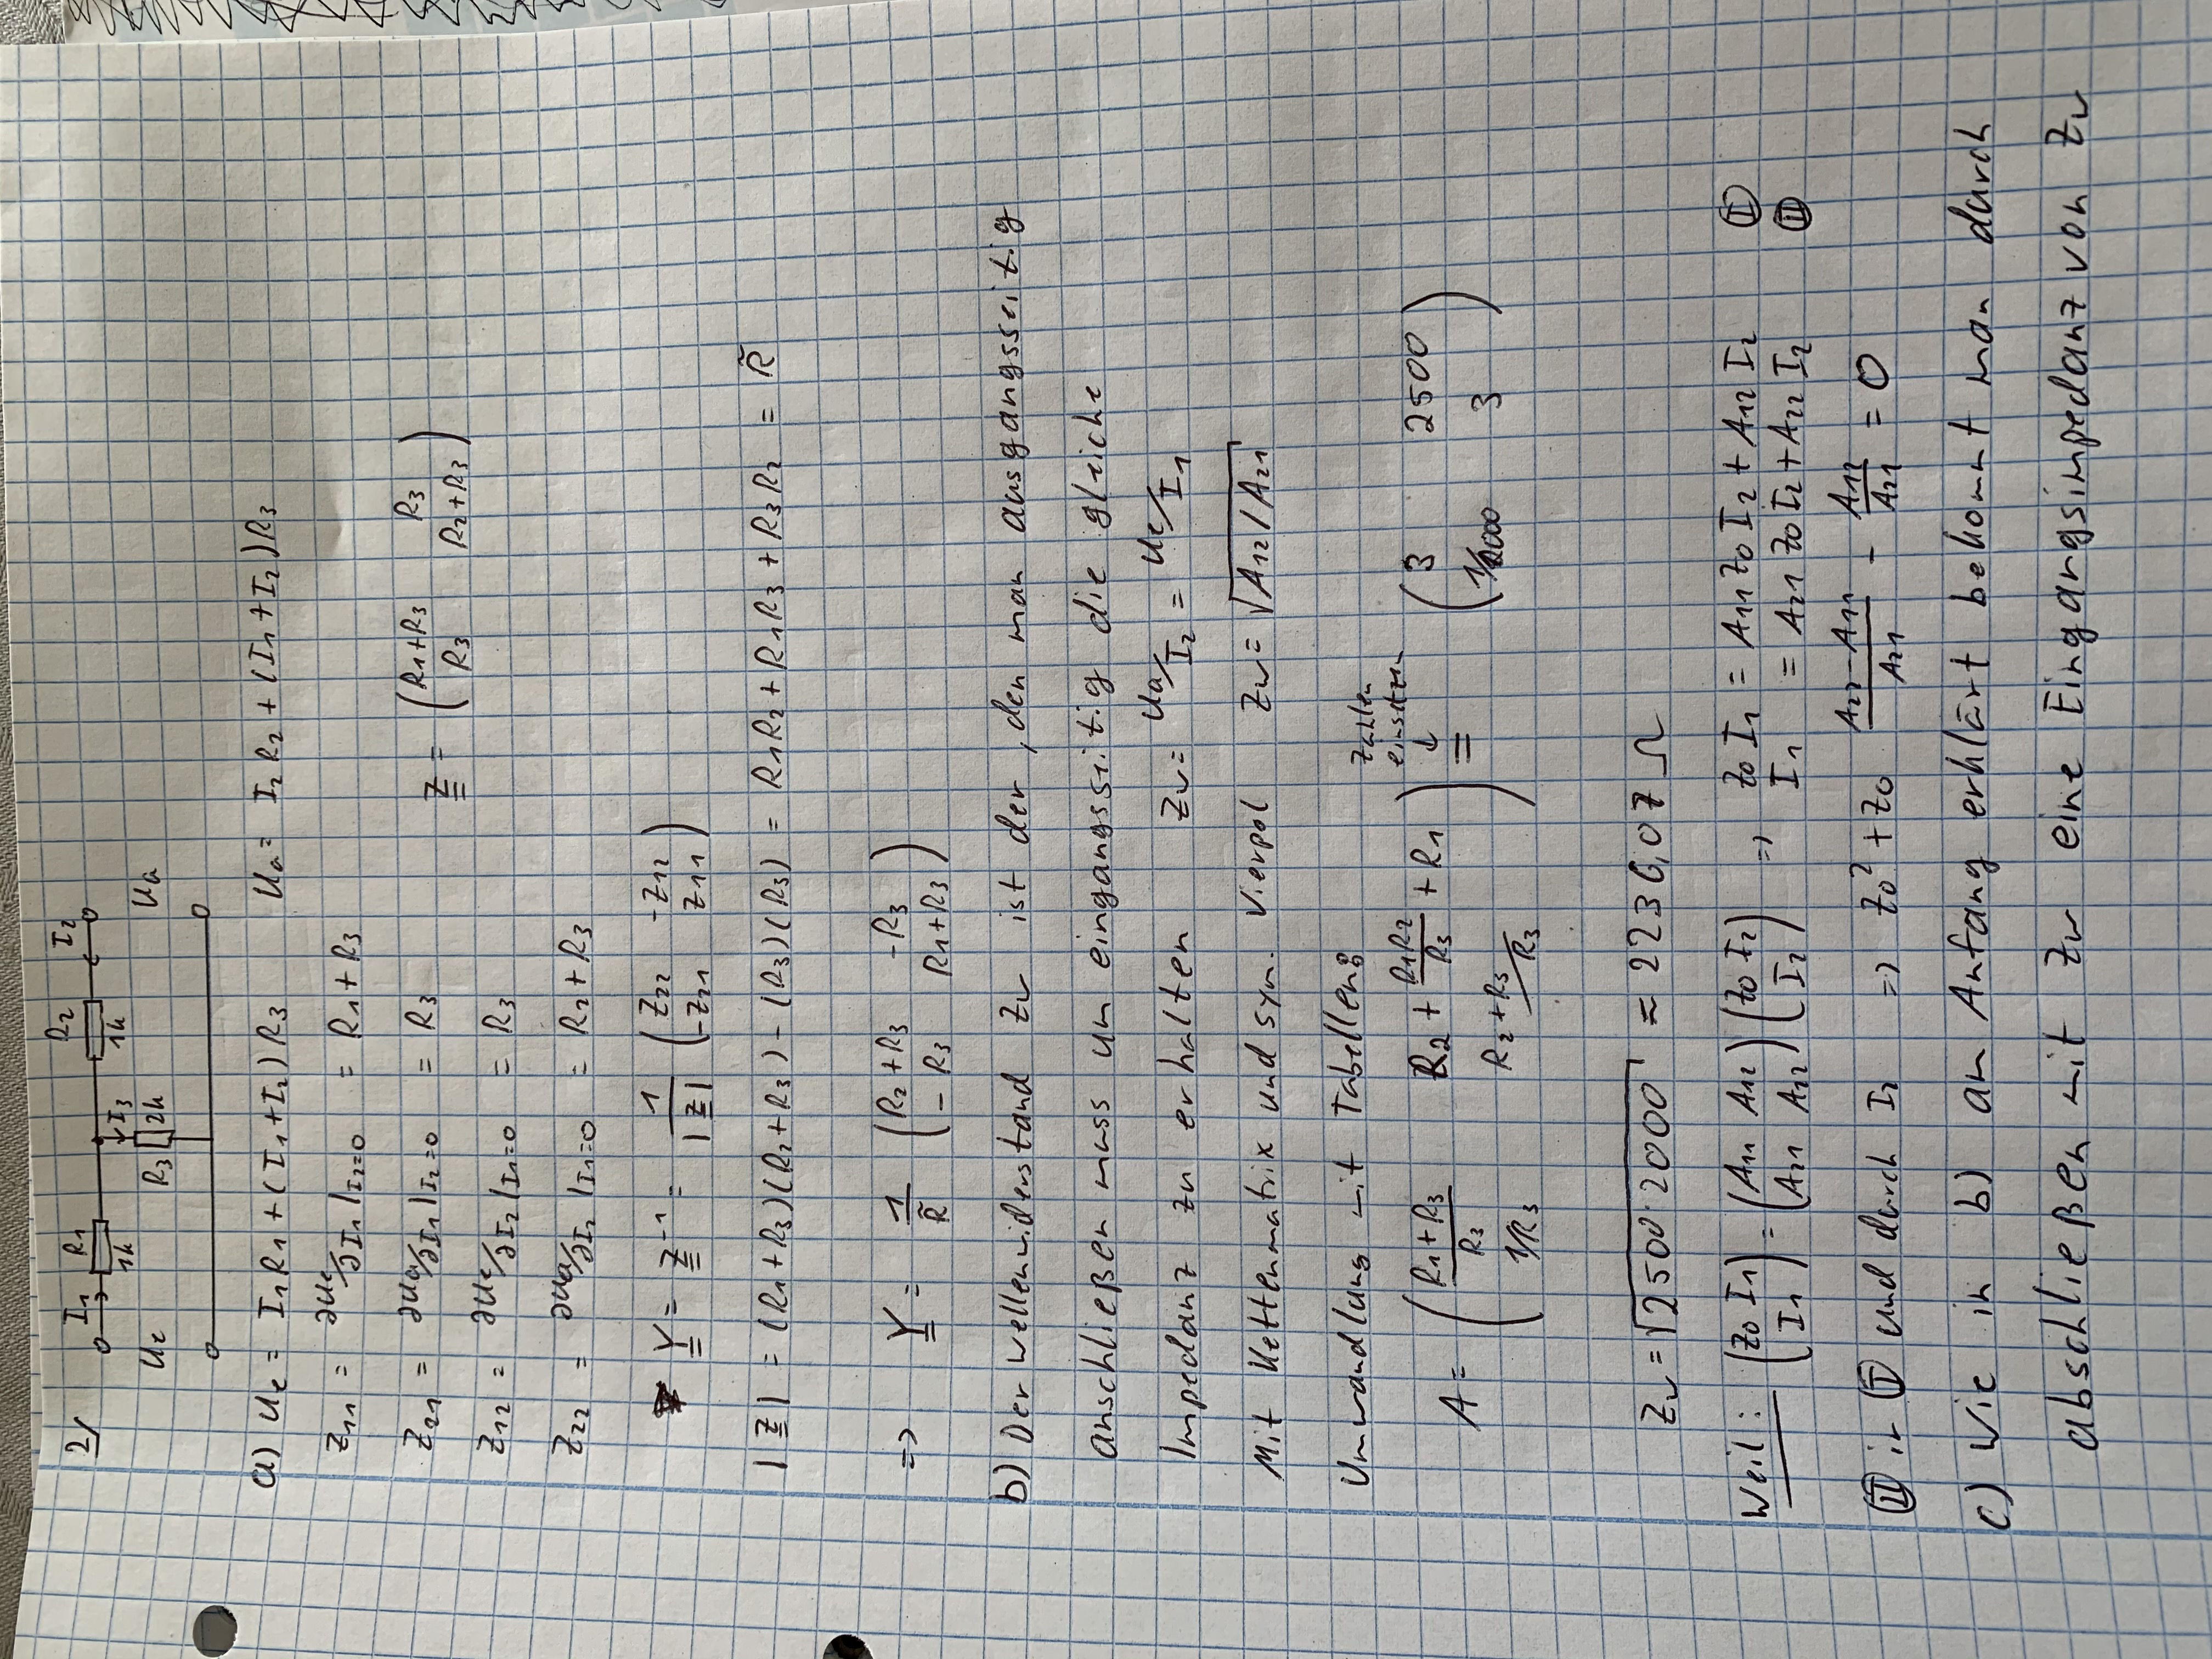 2/ I₁ R₁ R₂ I₂
1k I₃ 1k
Ue R₃ 2k Ua
a) Ue = I₁R₁ + (I₁+I₂)R₃ Ua = I₂R₂ + (I₁+I₂)R₃
Z₁₁ = ∂Ue/∂I₁ |I₂=0 = R₁+R₃
Z₂₁ = ∂Ua/∂I₁ |I₂=0 = R₃ Z = (R₁+R₃ R₃
R₃ R₂+R₃)
Z₁₂ = ∂Ue/∂I₂ |I₁=0 = R₃
Z₂₂ = ∂Ua/∂I₂ |I₁=0 = R₂+R₃
Y = Z⁻¹ = 1/|Z| (Z₂₂ -Z₁₂
-Z₂₁ Z₁₁)
|Z| = (R₁+R₃)(R₂+R₃) - (R₃)(R₃) = R₁R₂ + R₁R₃ + R₃R₂ = R̃
=> Y = 1/R̃ (R₂+R₃ -R₃
-R₃ R₁+R₃)
b) Der Wellenwiderstand Zw ist der, den man ausgangsseitig
anschließen muss um eingangsseitig die gleiche
Impedanz zu erhalten Zw = Ua/I₂ = Ue/I₁
Mit Kettenmatrix und sym. Vierpol Zw = √A₁₂/A₂₁
Umwandlung mit Tabellen:
Zahlen
einsetzen
↓
A = ((R₁+R₃)/R₃ R₂ + R₁R₂/R₃ + R₁ = (3 2500
1/R₃ R₂+R₃/R₃) 1/2000 3)
Zw = √2500·2000 ≈ 2236,07 Ω
Weil: (Z₀ I₁ = (A₁₁ A₁₂ (Z₀ I₂ => Z₀ I₁ = A₁₁ Z₀ I₂ + A₁₂ I₂ Ⓘ
I₁) A₂₁ A₂₂) I₂) I₁ = A₂₁ Z₀ I₂ + A₂₂ I₂ Ⅱ
Ⅱ in Ⓘ und durch I₂ => Z₀² + Z₀ (A₂₂-A₁₁)/A₂₁ - A₁₂/A₂₁ = 0
c) Wie in b) am Anfang erklärt bekommt man durch
abschließen mit Zw eine Eingangsimpedanz von Zw